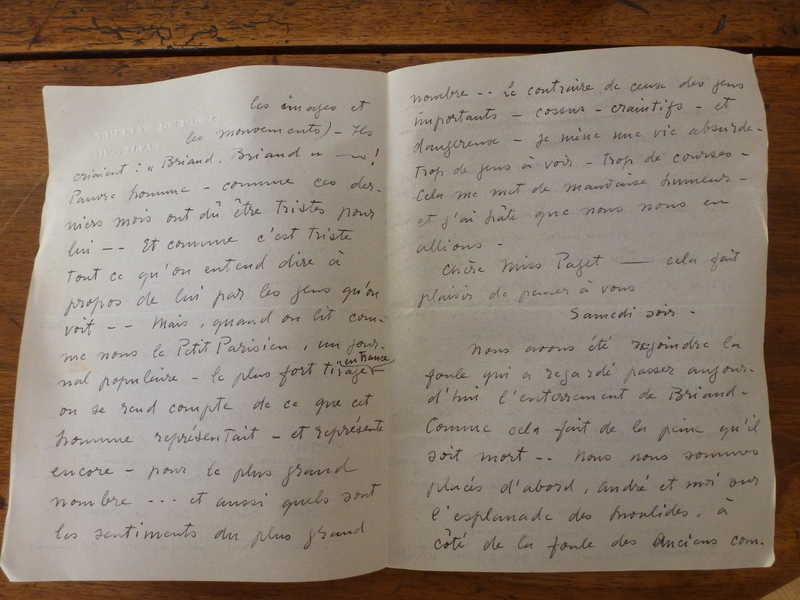 les images et
les mouvements) – Ils
criaient : "Briand, Briand" – !
Pauvre homme – comme ces der-
niers mois ont dû être tristes pour
lui – – Et comme c'est triste
tout ce qu'on entend dire à
propos de lui par les gens qu'on
voit – – Mais, quand on lit com-
me nous le Petit Parisien, un jour-
nal populaire – le plus fort tirage en France –
on se rend compte de ce que cet
homme représentait – et représente
encore – pour le plus grand
nombre ... et aussi quels sont
les sentiments du plus grand
nombre – – Le contraire de ceux des gens
importants – cossus – craintifs – et
dangereux – Je mène une vie absurde –
trop de gens à voir – trop de courses –
Cela me met de mauvaise humeur –
et j'ai hâte que nous nous en
allions –
Chère Miss Paget — cela fait
plaisir de penser à vous
Samedi soir –
Nous avons été rejoindre la
foule qui a regardé passer aujour-
d'hui l'enterrement de Briand –
Comme cela fait de la peine qu'il
soit mort – – Nous nous sommes
placés d'abord, André et moi sur
l'esplanade des Invalides, à
côté de la foule des Anciens com-